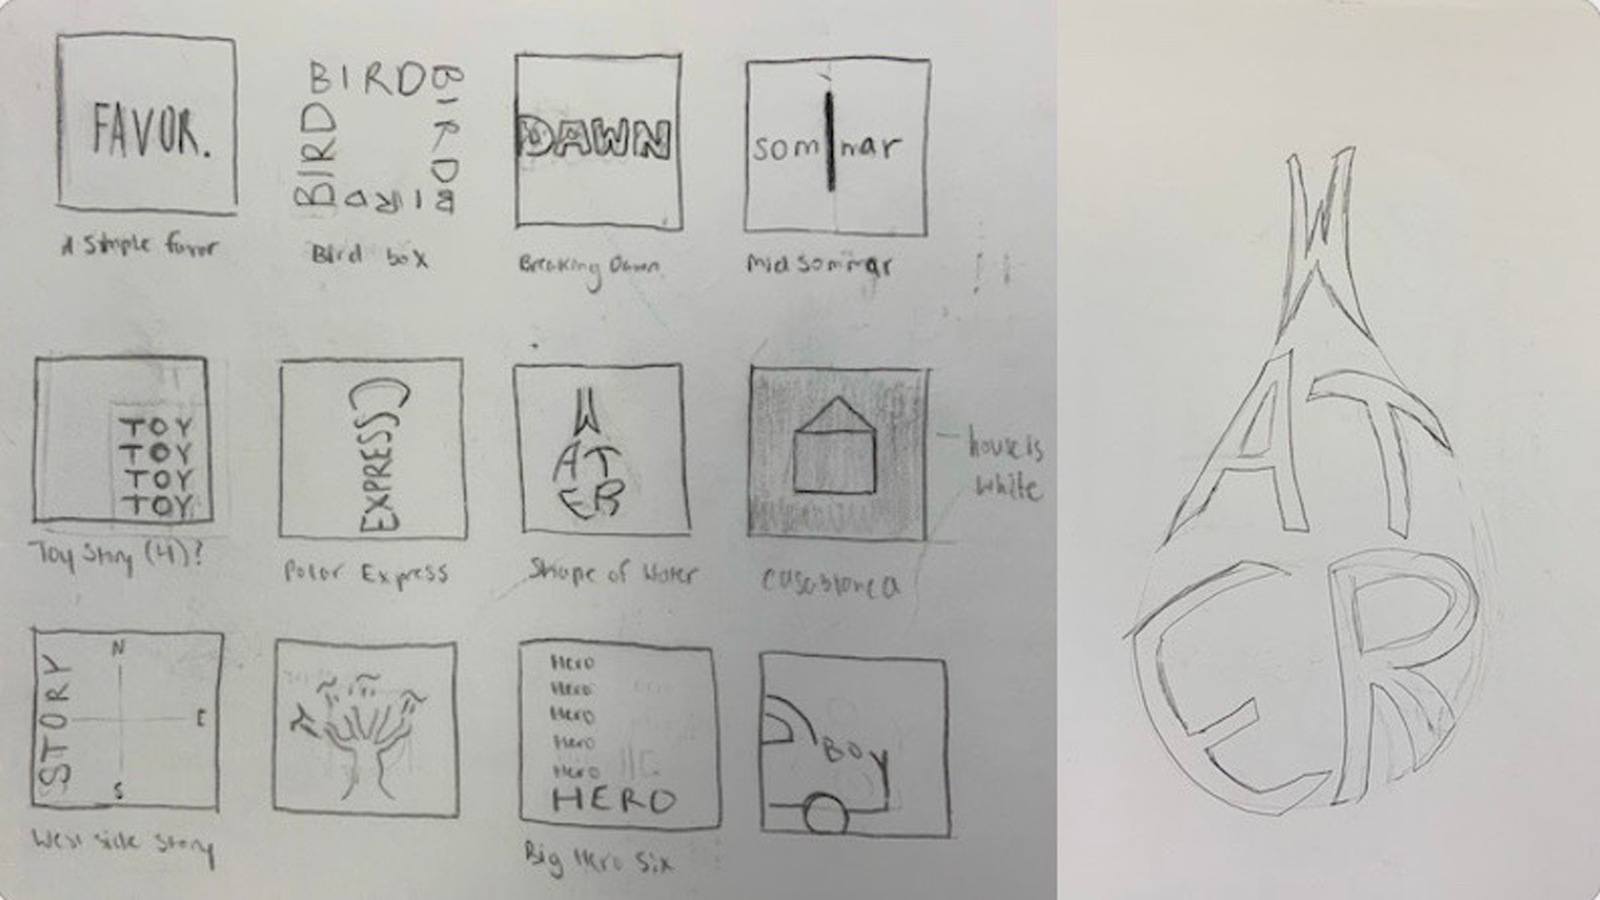 FAVOR.
A Simple Favor
BIRD
BIRD
BIRD
BIRD
Bird box
DAWN
Breaking Dawn
som mar
mid sommar
TOY
TOY
TOY
TOY
Toy Story (4)?
EXPRESS
Polar Express
W
AT
ER
Shape of Water
house is
white
casablanca
STORY
N
E
S
West side story
Hero
Hero
Hero
Hero
Hero
HERO
Big Hero Six
BOY
W
AT
ER